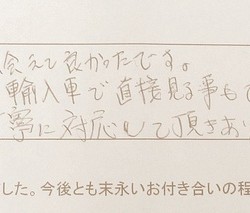 会えて良かったです。
輸入車で直接見る事も
寧に対応して頂きあ
した。今後とも末永いお付き合いの程